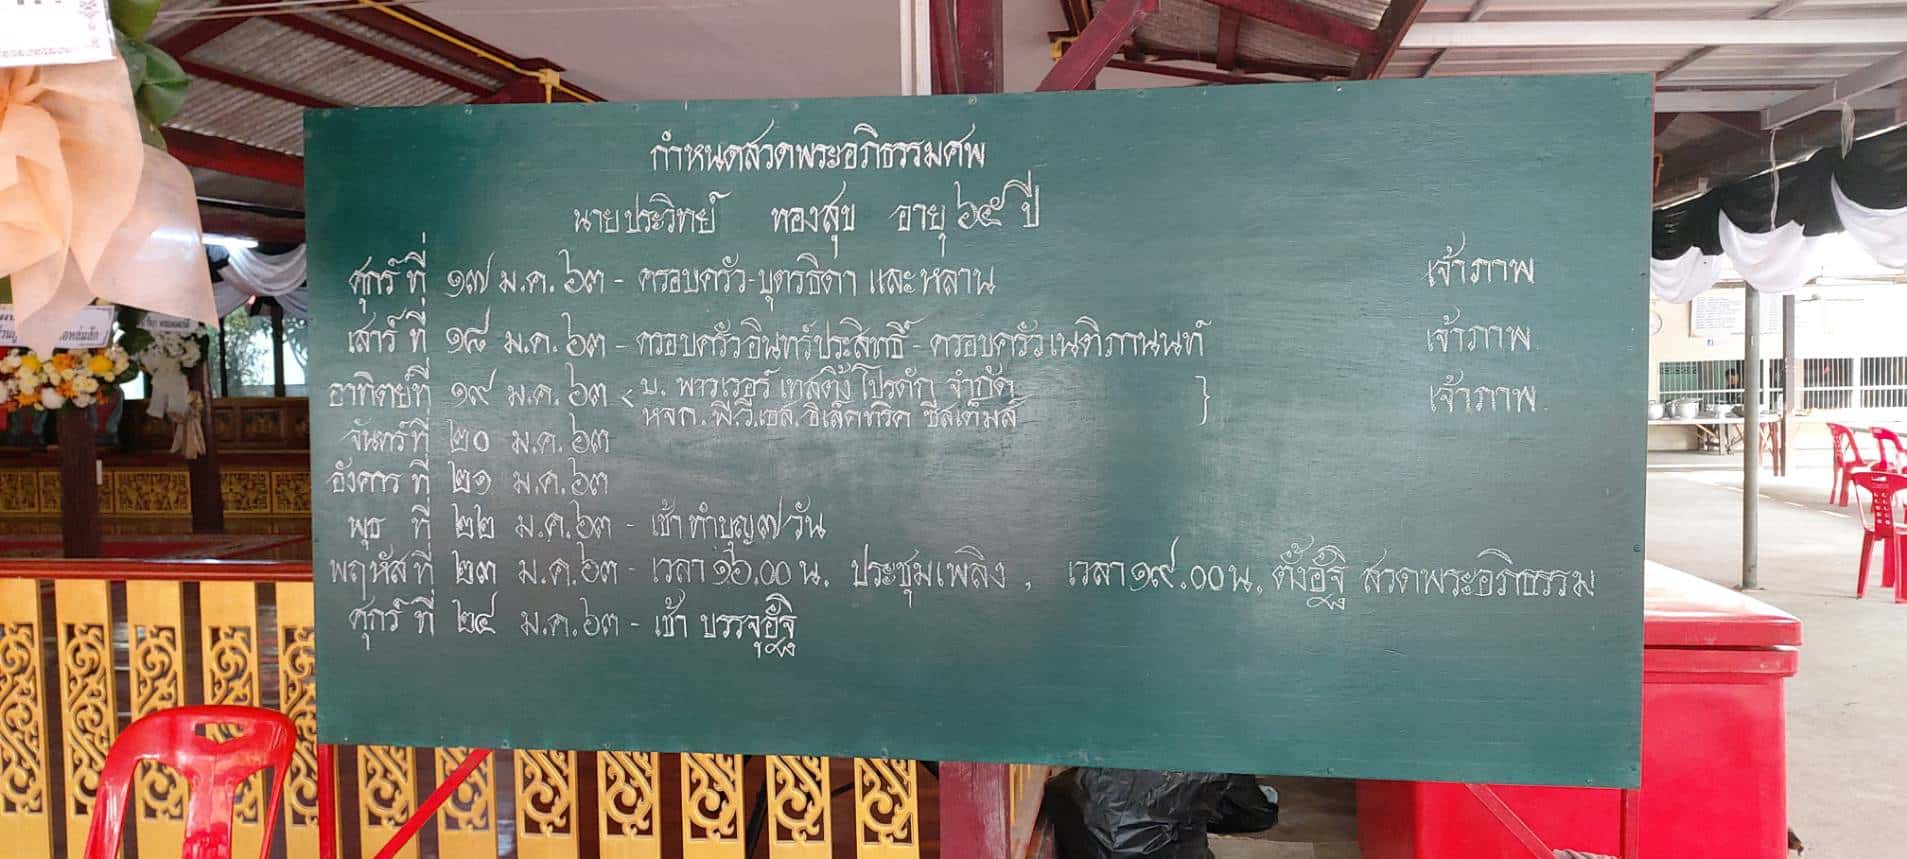 กำหนดสวดพระอภิธรรมศพ
นายประวิทย์ ทองสุข อายุ ๖๕ ปี
ศุกร์ ที่ ๑๗ ม.ค. ๖๓ - ครอบครัว-บุตรธิดา และหลาน เจ้าภาพ
เสาร์ ที่ ๑๘ ม.ค. ๖๓ - ครอบครัวอินทร์ประสิทธิ์ - ครอบครัวเนติภานนท์ เจ้าภาพ
อาทิตย์ที่ ๑๙ ม.ค. ๖๓ < บ. พาวเวอร์ เทสติ้ง โปรดัก จำกัด } เจ้าภาพ
หจก. พี.วี.เอส. อิเล็คทริค ซีสเต็มส์
จันทร์ที่ ๒๐ ม.ค. ๖๓
อังคาร ที่ ๒๑ ม.ค. ๖๓
พุธ ที่ ๒๒ ม.ค. ๖๓ - เช้า ทำบุญ ๗ วัน
พฤหัสที่ ๒๓ ม.ค. ๖๓ - เวลา ๑๖.๐๐ น. ประชุมเพลิง , เวลา ๑๙.๐๐ น. ตั้งอัฐิ สวดพระอภิธรรม
ศุกร์ ที่ ๒๔ ม.ค. ๖๓ - เช้า บรรจุอัฐิ